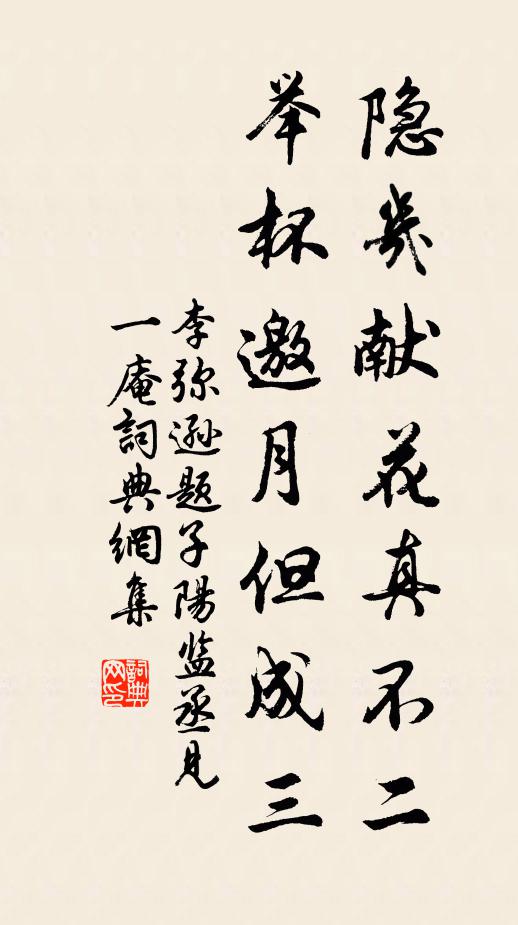 隐几献花真不二
举杯邀月但成三
李弥逊题子陽监丞见
一庵詞典網集
詞典网印